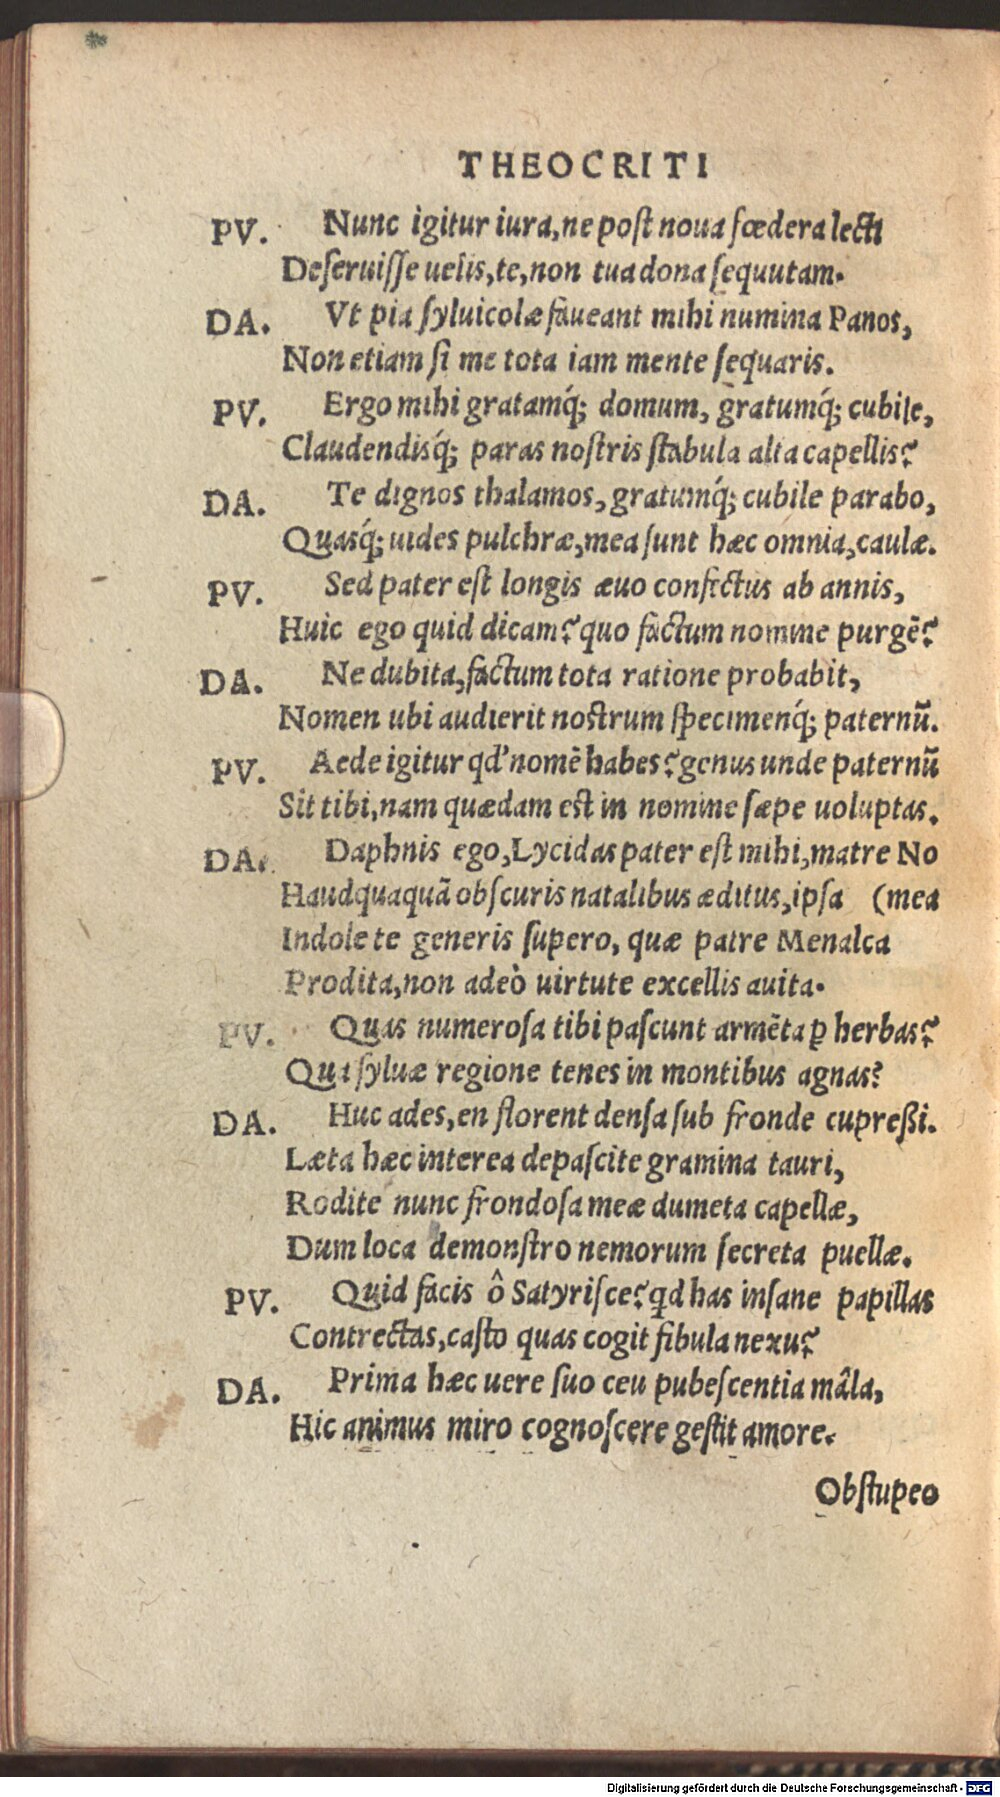 THEOCRITI
PV. Nunc igitur iura, ne post noua fœdera lecti
Deseruisse uelis, te, non tua dona sequutam.
DA. Vt pia syluicolæ faueant mihi numina Panos,
Non etiam si me tota iam mente sequaris.
PV. Ergo mihi gratamq́; domum, gratumq́; cubile,
Claudendisq́; paras nostris stabula alta capellis?
DA. Te dignos thalamos, gratumq́; cubile parabo,
Quasq́; uides pulchræ, mea sunt hæc omnia, caulæ.
PV. Sed pater est longis æuo confectus ab annis,
Huic ego quid dicam? quo factum nomine purgẽ?
DA. Ne dubita, factum tota ratione probabit,
Nomen ubi audierit nostrum specimenq́; paternũ.
PV. Aede igitur qd' nomẽ habes? genus unde paternũ
Sit tibi, nam quædam est in nomine sæpe uoluptas.
DA. Daphnis ego, Lycidas pater est mihi, matre No
Haudquaquã obscuris natalibus æditus, ipsa (mea
Indole te generis supero, quæ patre Menalca
Prodita, non adeò uirtute excellis auita.
PV. Quas numerosa tibi pascunt armẽta ꝑ herbas?
Qua syluæ regione tenes in montibus agnas?
DA. Huc ades, en florent densa sub fronde cupreßi.
Læta hæc interea depascite gramina tauri,
Rodite nunc frondosa meæ dumeta capellæ,
Dum loca demonstro nemorum secreta puellæ.
PV. Quid facis ô Satyrisce? qd has insane papillas
Contrectas, casto quas cogit fibula nexu?
DA. Prima hæc uere suo ceu pubescentia mâla,
Hic animus miro cognoscere gestit amore.
Obstupeo
Digitalisierung gefördert durch die Deutsche Forschungsgemeinschaft - DFG